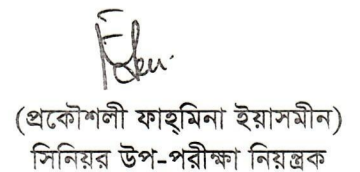 (প্রকৌশলী ফাহ্‌মিনা ইয়াসমীন)
সিনিয়র উপ-পরীক্ষা নিয়ন্ত্রক